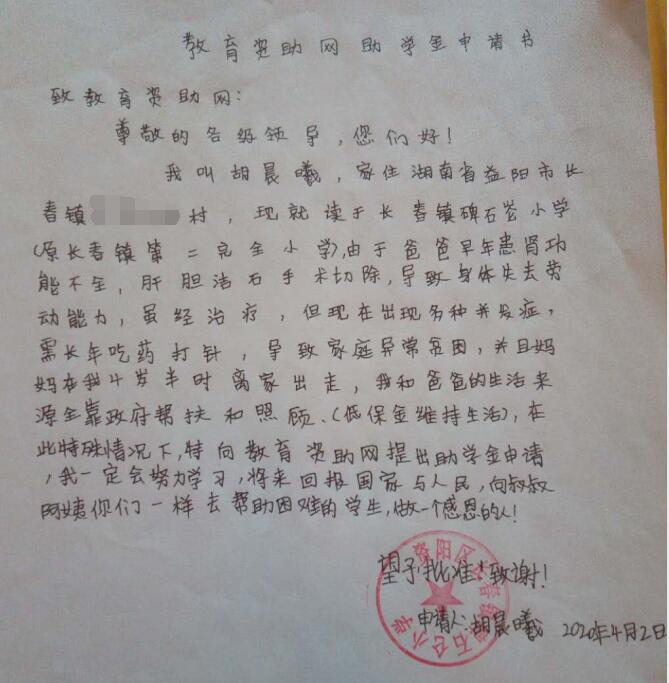 教育资助网助学金申请书
致教育资助网：
尊敬的各级领导，您们好！
我叫胡晨曦，家住湖南省益阳市长
春镇村，现就读于长春镇碑石仑小学
（原长春镇第二完全小学），由于爸爸早年患肾功
能不全，肝胆结石手术切除，导致身体失去劳
动能力，虽经治疗，但现在出现多种并发症，
需长年吃药打针，导致家庭异常贫困，并且妈
妈在我4岁半时离家出走，我和爸爸的生活来
源全靠政府帮扶和照顾、（低保金维持生活），在
此特殊情况下，特向教育资助网提出助学金申请
，我一定会努力学习，将来回报国家与人民，向叔叔
阿姨你们一样去帮助困难的学生，做一个感恩的人！
望予批准！致谢！
申请人：胡晨曦 2020年4月2日
资阳区长春镇碑石仑小学